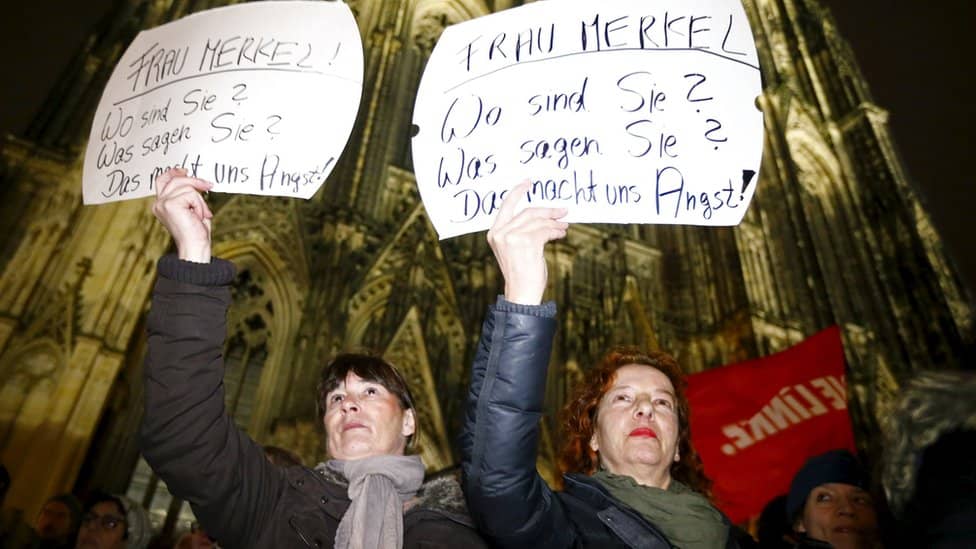 FRAU MERKEL!
Wo sind Sie?
Was sagen Sie?
Das macht uns Angst!
FRAU MERKEL
Wo sind Sie?
Was sagen Sie?
Das macht uns Angst!
DIE LINKE.